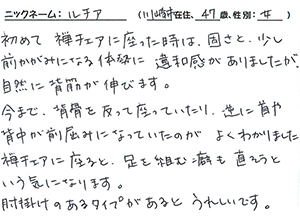 ニックネーム：ルチア （川崎市在住、47歳、性別：女）
初めて 禅チェアに座った時は、固さと、少し
前かがみになる体勢に 違和感がありましたが、
自然に 背筋が伸びます。
今まで、背骨を反って座っていたり、逆に首や
背中が前屈みになっていたのが よくわかりました
禅チェアに座ると、足を組む癖も直そうと
いう気になります。
肘掛けのあるタイプがあるとうれしいです。